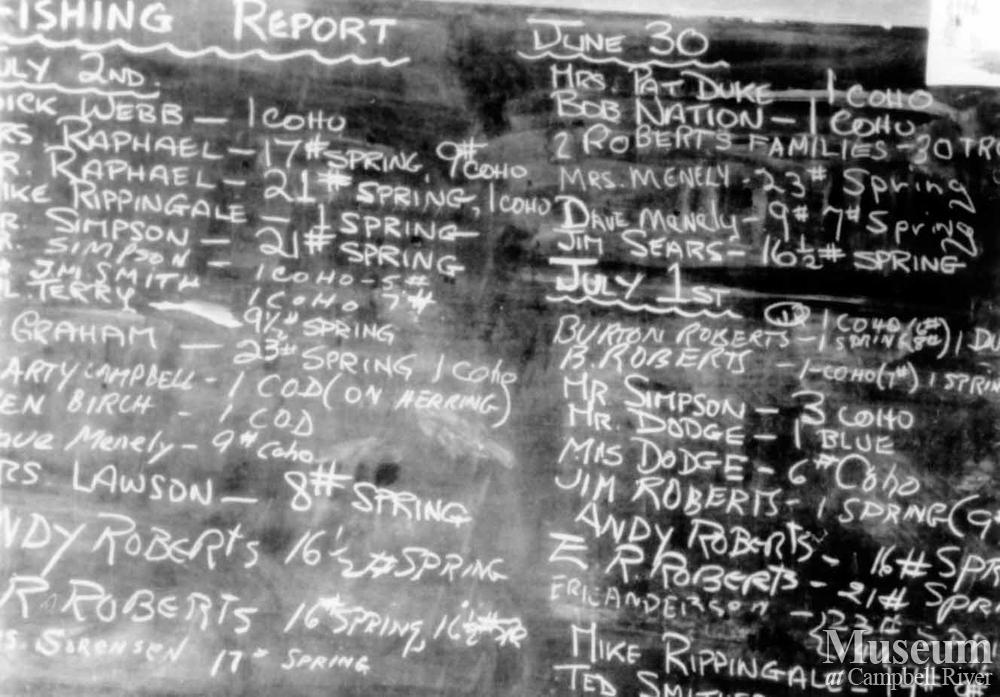 FISHING REPORT
JULY 2ND.
DICK WEBB — 1 COHO
MRS RAPHAEL — 17# SPRING, 9# COHO
MR. RAPHAEL — 21# SPRING, 1 COHO
MIKE RIPPINGALE — 1 SPRING
MR. SIMPSON — 21# SPRING
SIMPSON — 1 COHO - 5#
JM SMITH 1 COHO 7#
TERRY 9½# SPRING
GRAHAM — 23# SPRING 1 COHO
MARTY CAMPBELL - 1 COD (ON HERRING)
EN BIRCH - 1 COD
Dave Menely - 9# Coho
MRS LAWSON — 8# SPRING
ANDY ROBERTS 16½# SPRING
R. ROBERTS 16# SPRING, 16½# SPR
S. SORENSEN 17# SPRING
JUNE 30
MRS. PAT DUKE — 1 COHO
BOB NATION — 1 COHO
2 ROBERTS FAMILIES - 30 TRO
MRS. MENELY - 23# Spring
DAVE Menely - 9# 7# Spring
JIM SEARS - 16½# SPRING
JULY 1ST
BURTON ROBERTS - 1 COHO 1 SPRING (8#) 1 DU
B. ROBERTS - 1 - COHO (7#) 1 SPRIN
MR SIMPSON — 3 COHO
MR. DODGE — 1 BLUE
MRS DODGE - 6# Coho
JIM ROBERTS - 1 SPRING (9#
ANDY ROBERTS - 16# SPR
E R. ROBERTS - 21# SPRI
ERIC ANDERSON - 22#
MIKE RIPPINGALE
TED
Museum
at Campbell River